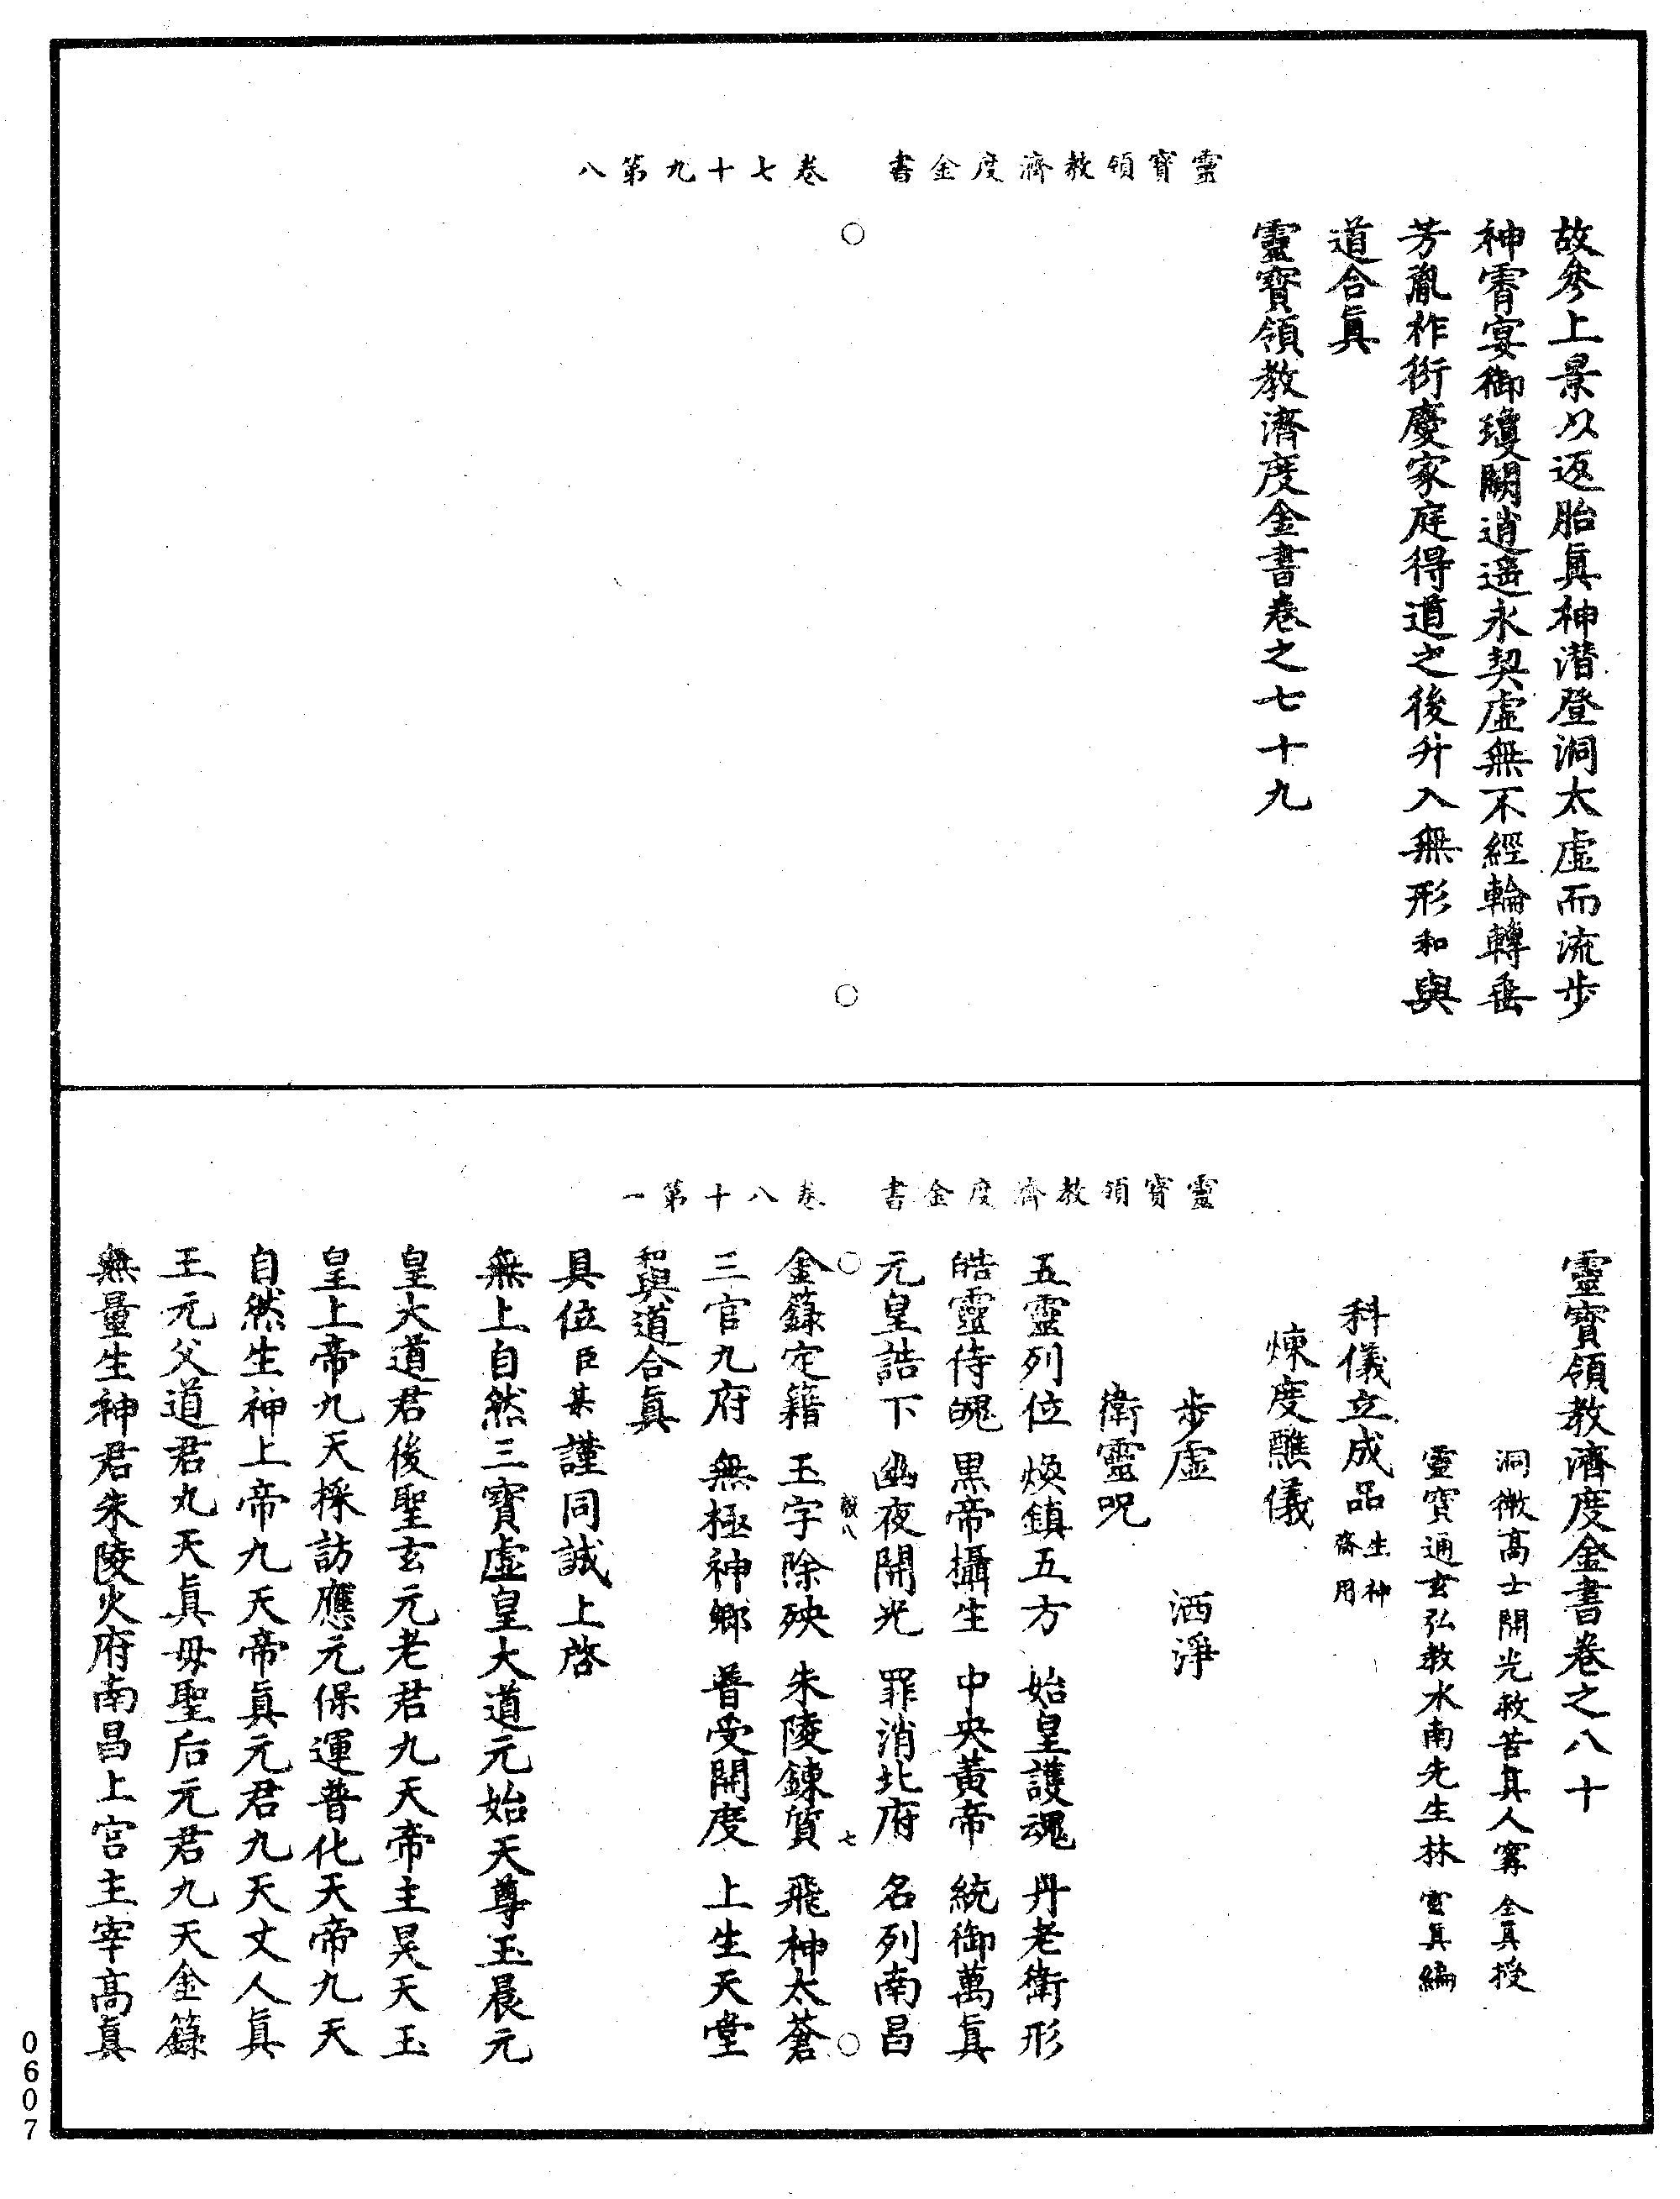 靈寶領教濟度金書　卷七十九第八
故參上景以返胎真神潛登洞太虛而流步
神霄宴御瓊闕逍遥永契虛無不經輪轉垂
芳胤祚衍慶家庭得道之後升入無形和與
道合真
靈寶領教濟度金書卷之七十九
靈寶領教濟度金書　卷八十第一
靈寶領教濟度金書卷之八十
洞微高士開光救苦真人甯全真授
靈寶通玄弘教水南先生林靈真編
科儀立成品生神齋用
煉度醮儀
步虛　洒淨
衛靈呪
五靈列位　煥鎮五方　始皇護魂　丹老衛形
皓靈侍魄　黑帝攝生　中央黃帝　統御萬真
元皇誥下　幽夜開光　罪消北府　名列南昌
金籙定籍　玉字除殃　朱陵鍊質　飛神太蒼
三官九府　無極神鄉　普受開度　上生天堂
和與道合真
具位臣某謹同誠上啓
無上自然三寶虛皇大道元始天尊玉晨元
皇大道君後聖玄元老君九天帝主昊天玉
皇上帝九天採訪應元保運普化天帝九天
自然生神上帝九天帝真元君九天丈人真
王元父道君九天真母聖后元君九天金籙
無量生神君朱陵火府南昌上宮主宰高真
七
0607